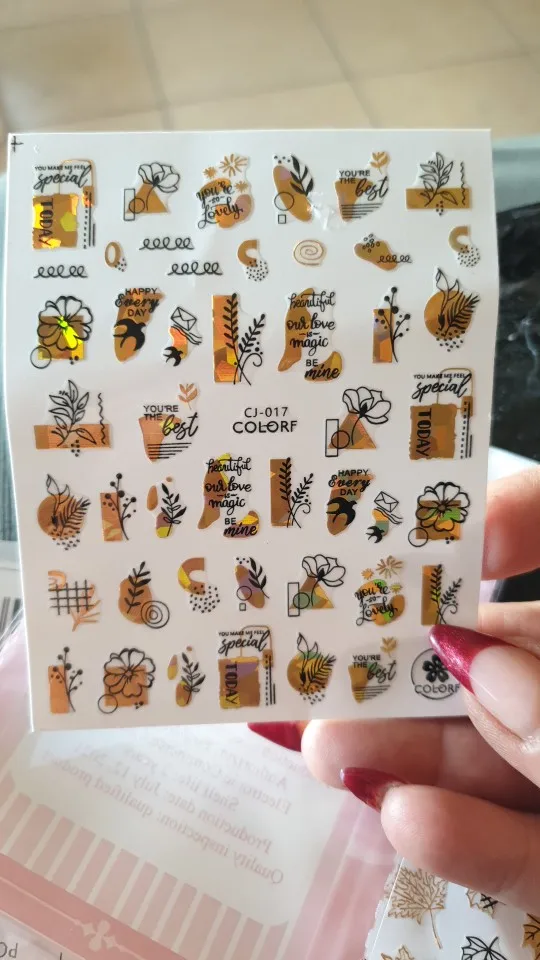 YOU MAKE ME FEEL
special
TODAY
you're
so
Lovely
YOU'RE
THE best
HAPPY
Every
DAY
beautiful
our love
is
magic
BE
mine
YOU MAKE ME FEEL
special
TODAY
YOU'RE
THE best
CJ-017
COLORF
beautiful
our love
is
magic
BE
mine
HAPPY
Every
DAY
you're
so
Lovely
YOU MAKE ME FEEL
special
TODAY
YOU'RE
THE best
COLORF
Production date: July 12, 202
Quality inspection: qualified produc